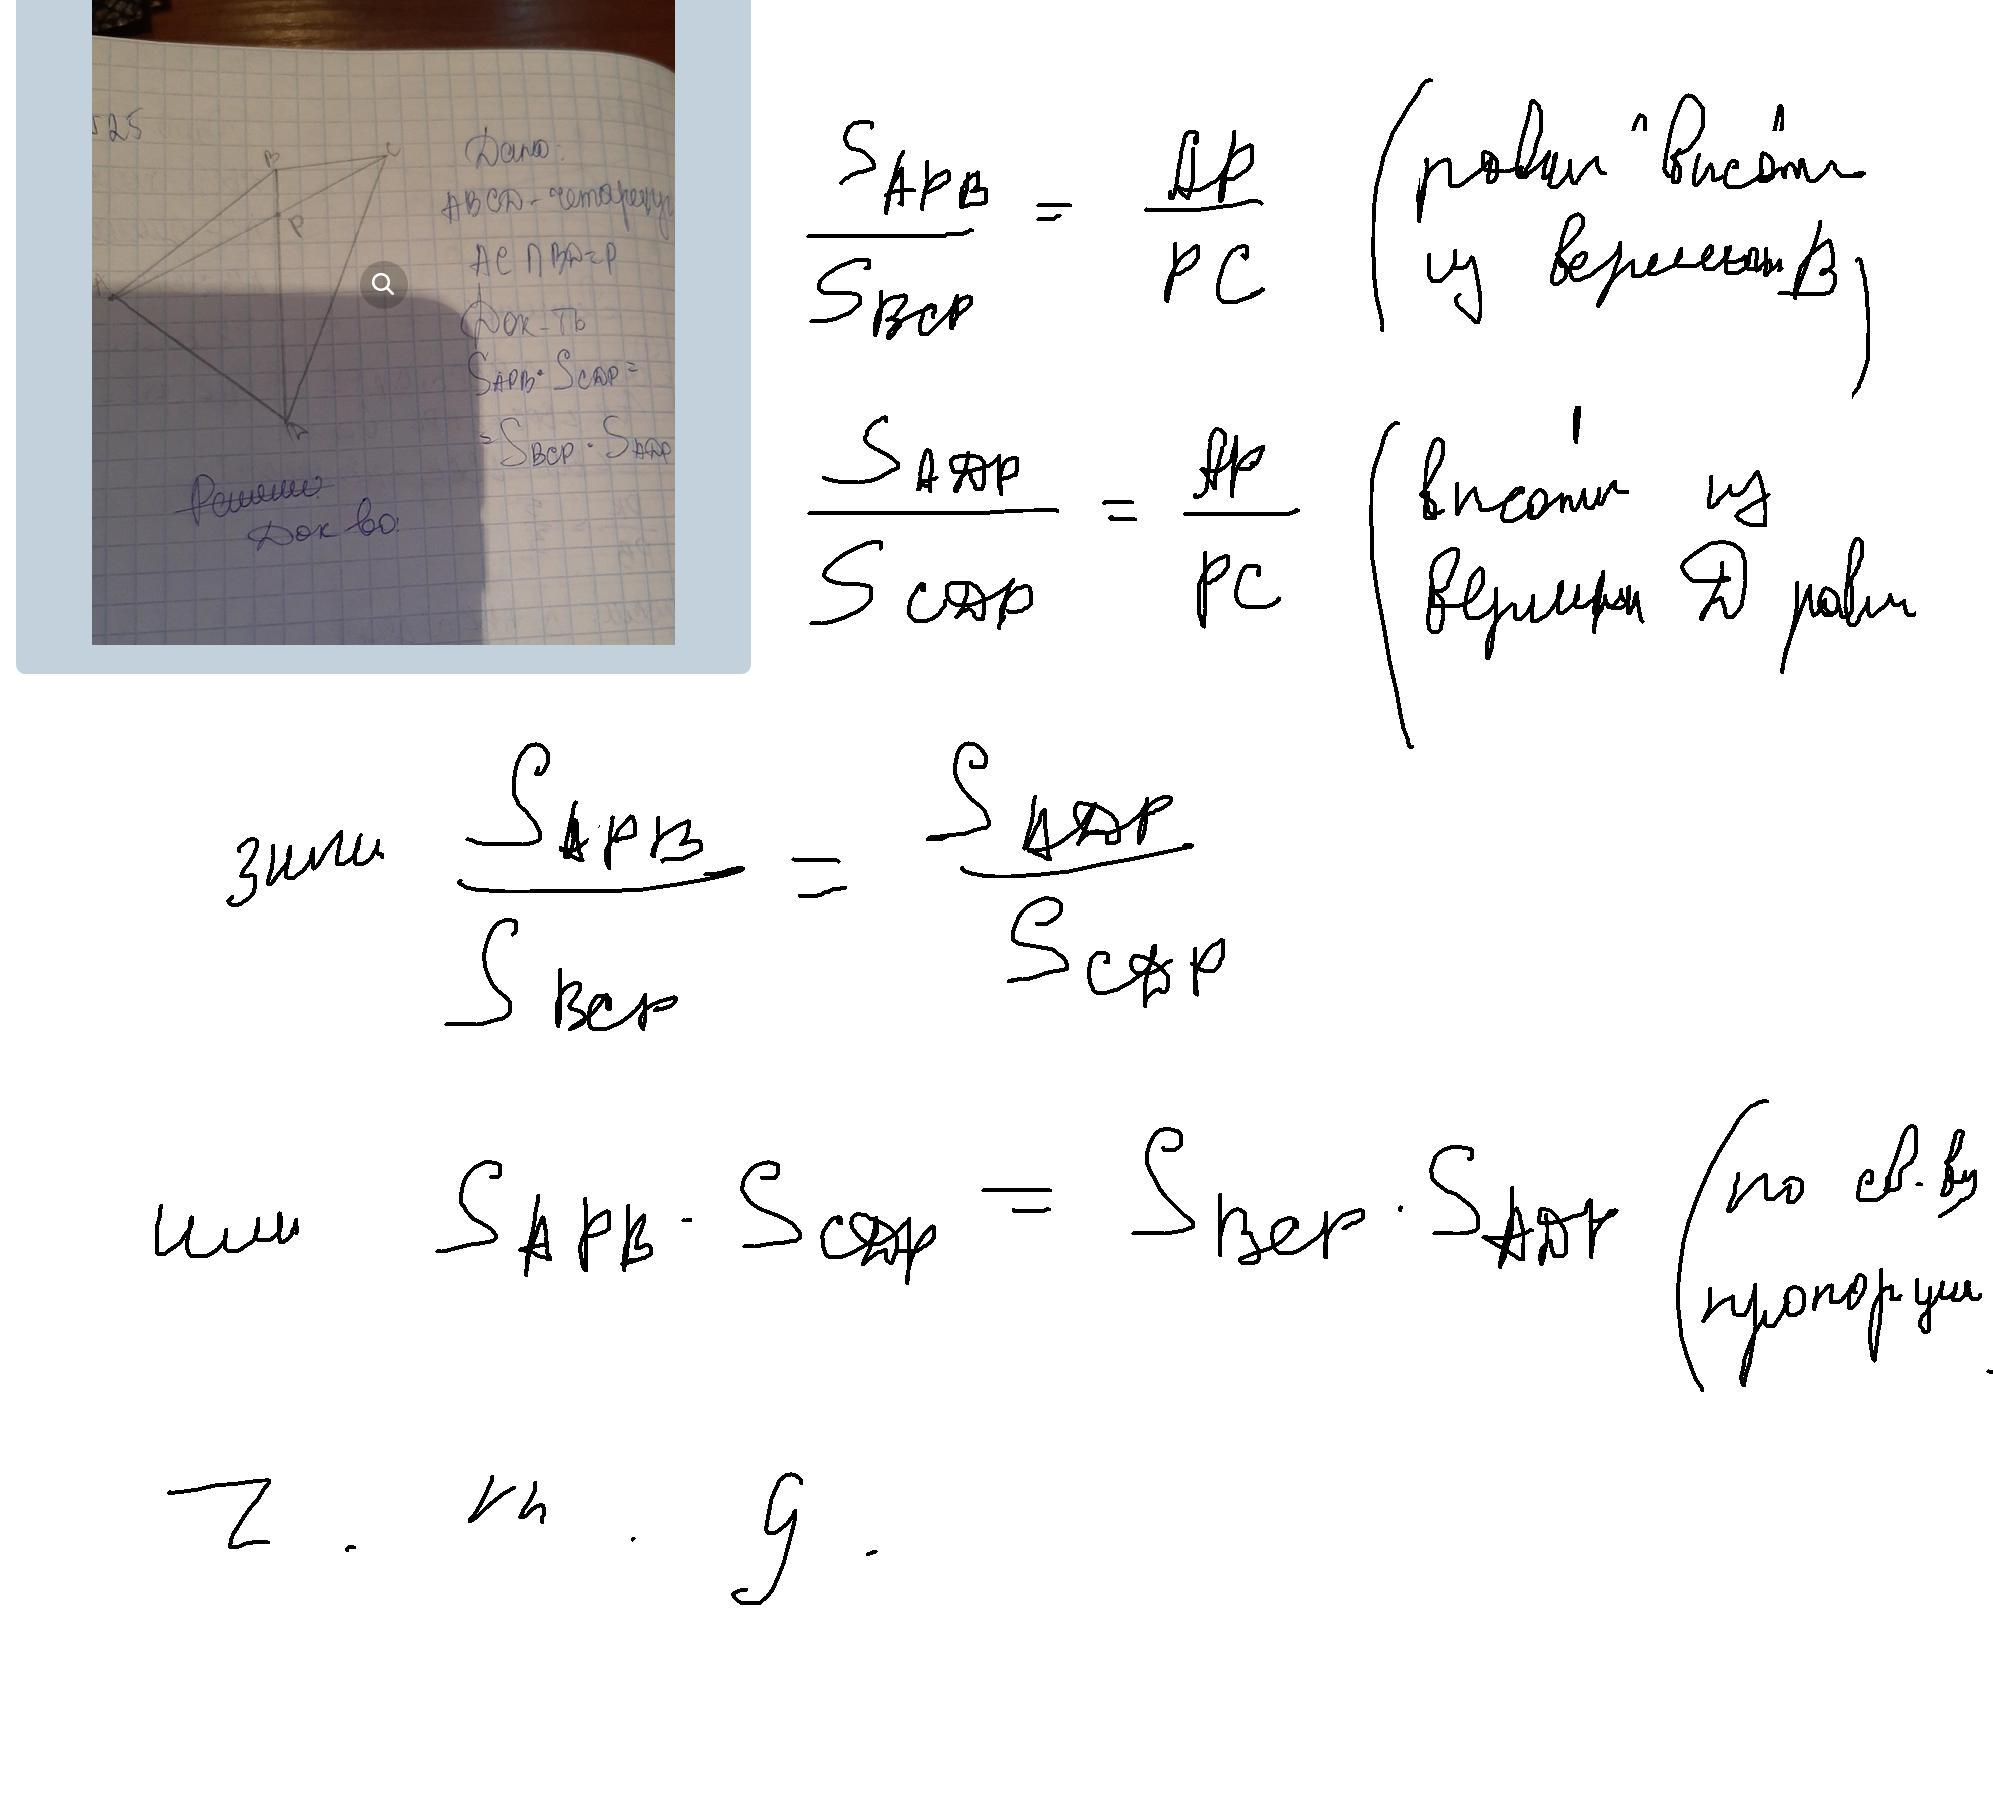 525
B
C
P
A
Дано:
ABCD - четырёхуг
AC ∩ BD = P
Док-ть
S_APB · S_CDP =
= S_BCP · S_ADP
Решение
Док во:
S_APB / S_BCP = AP / PC (равны высоты
из вершины B)
S_ADP / S_CDP = AP / PC (высоты из
вершины D равн
S_APB / S_BCP = S_ADP / S_CDP
или S_APB · S_CDP = S_BCP · S_ADP (по св-ву
пропорции